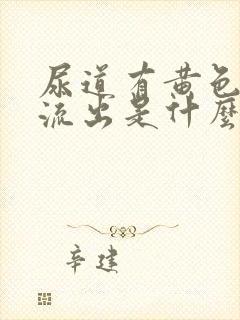 尿道有黄色
流出是什麼
辛建